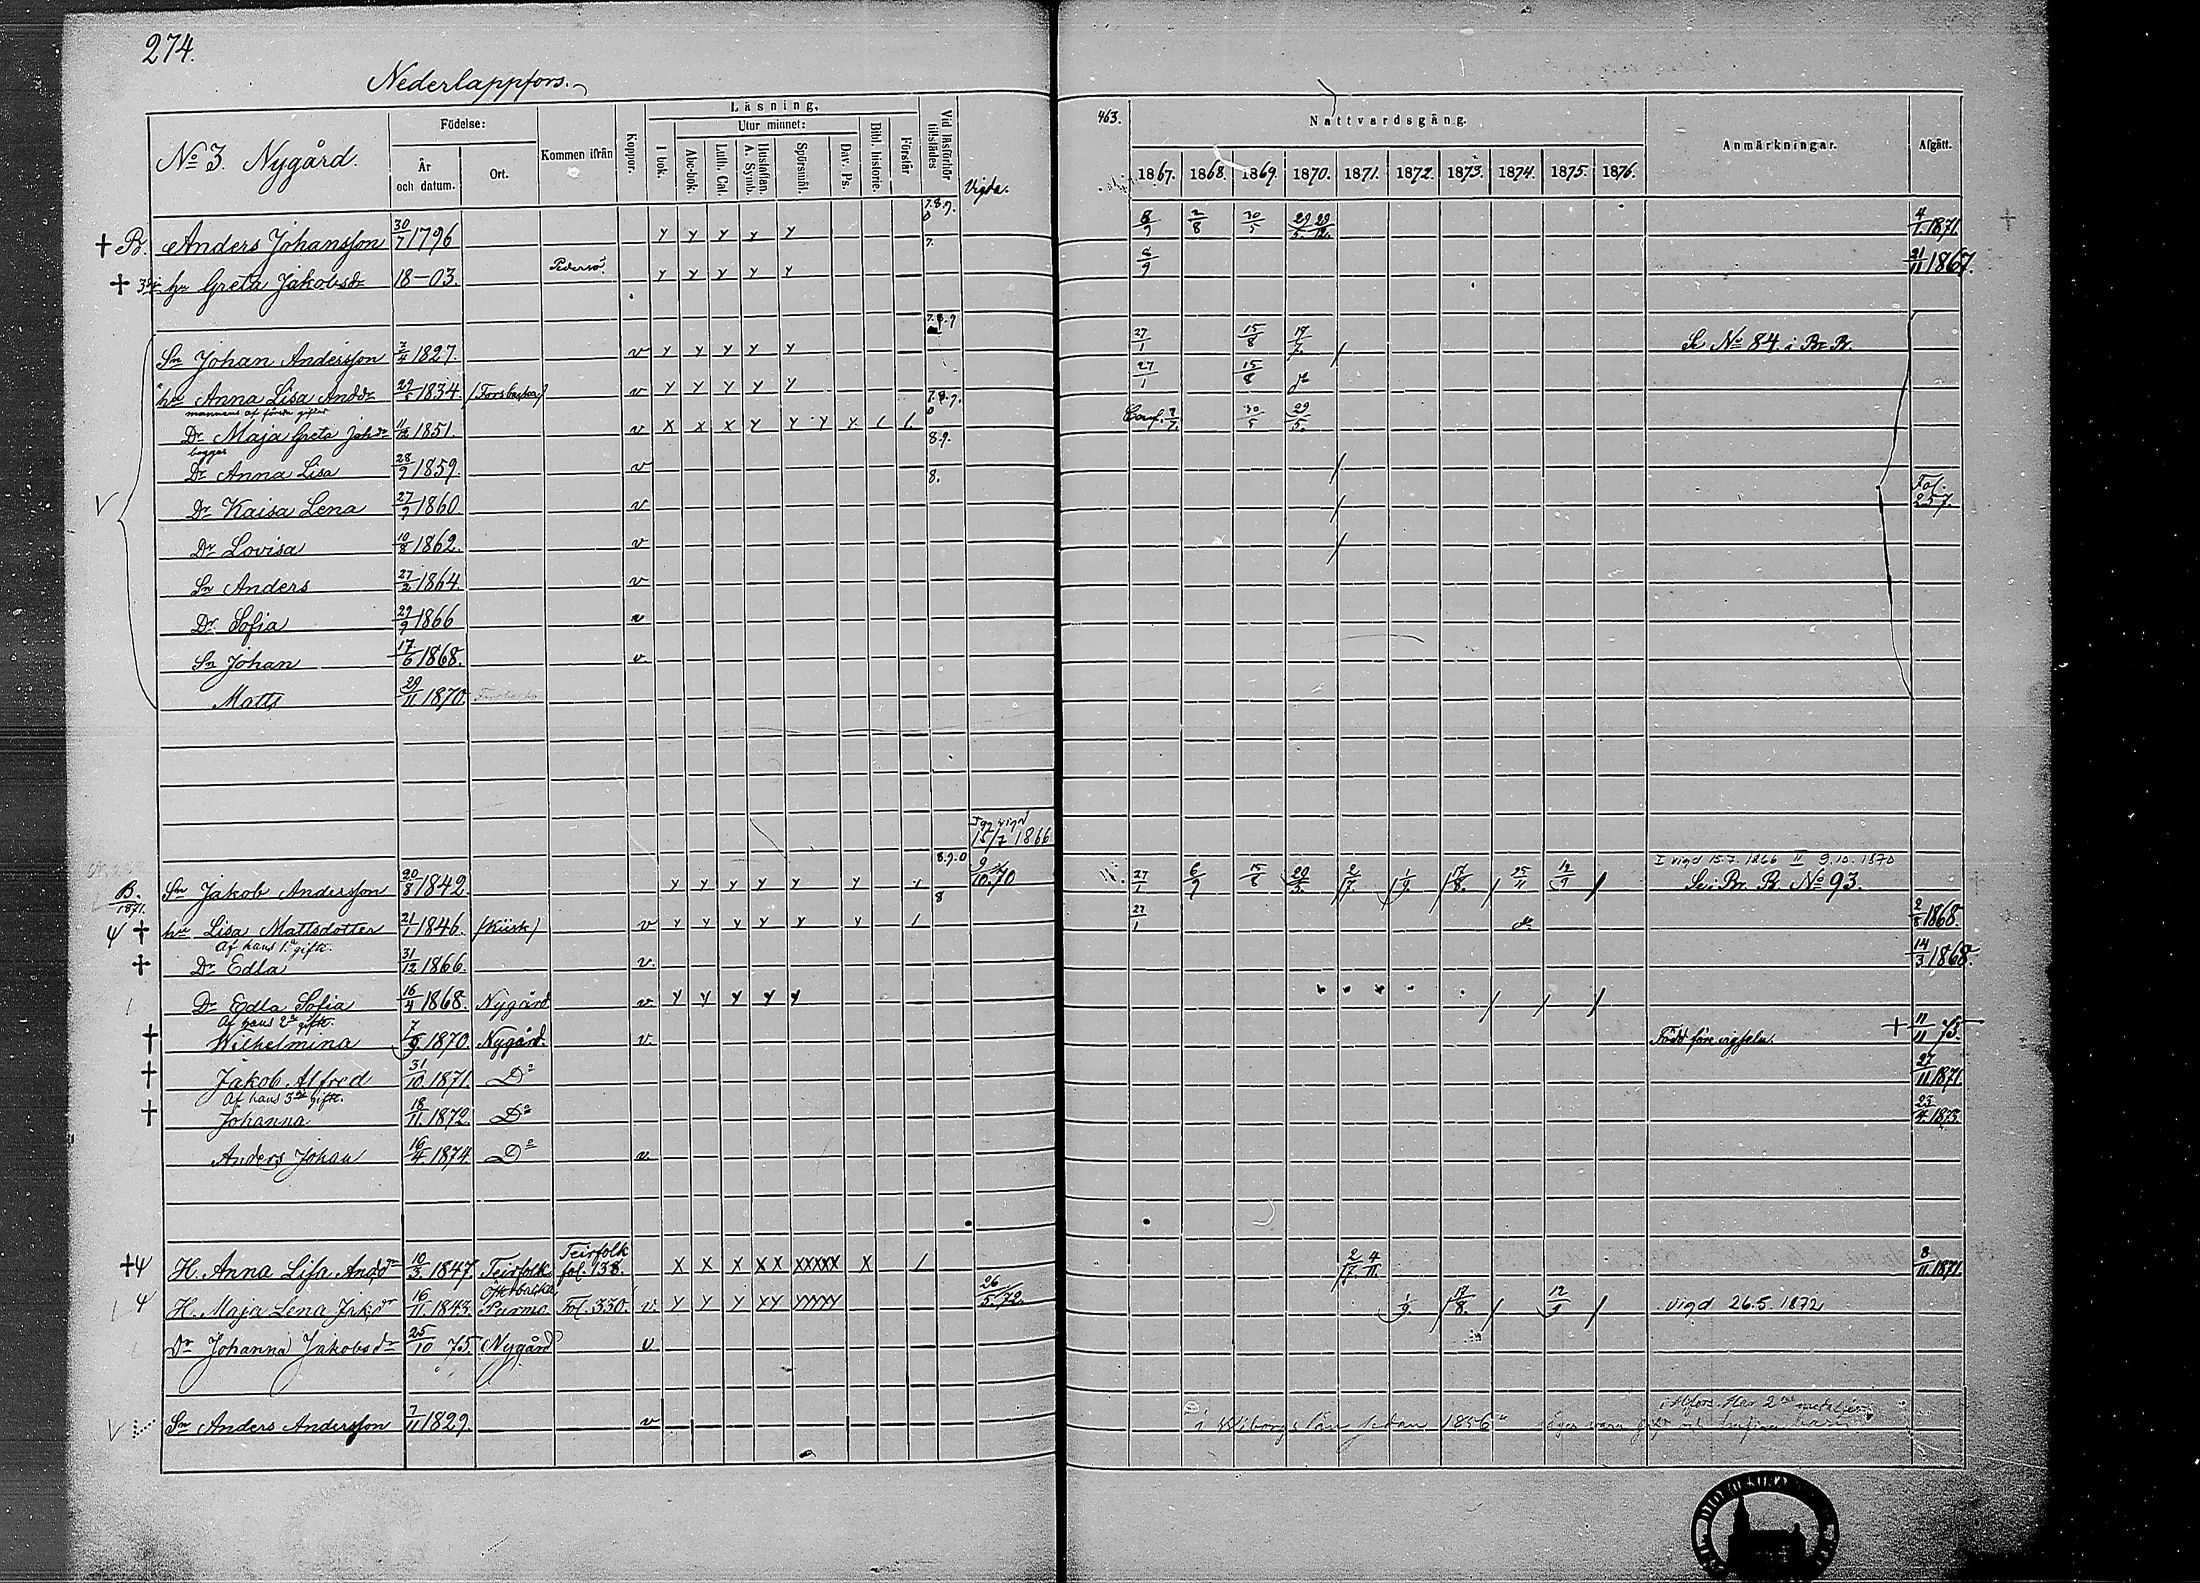 274.
Nederlappfors.
No 3. Nygård.
Födelse:
År och datum.
Ort.
Kommen ifrån
Koppor.
Läsning,
I bok.
Utur minnet:
Abc-bok.
Luth. Cat.
Hustaflan. A. Symb.
Spörsmål.
Dav. Ps.
Bibl. historie.
Förstår
Vid läsförhör tillstädes
Vigda.
463.
Nattvardsgång.
1867. 1868. 1869. 1870. 1871. 1872. 1873. 1874. 1875. 1876.
Anmärkningar.
Afgått.
† B. Anders Johansson 30/7 1796 y y y y y 7.8.9. 0 8/9 2/8 30/5 29/5. 29/12. 4/1. 1871.
† hu Greta Jakobsdr 18-03. Pedersö. y y y y y 7. 6/9 21/11 1867.
Sn Johan Andersson 3/4 1827. v y y y y y 7.8.9 27/1 15/8 17/7. / Se No 84 i Br. B.
hu Anna Lisa Anddr 29/5 1834 (Forsbacka) v y y y y y 27/1 15/8 do
mannens af förra giftet
Dr Maja Greta Johdr 11/12 1851. v x x x y y y y / /. 7.8.9. 0 Conf. 7/7. 30/5 29/5.
begges
Dr Anna Lisa 28/9 1859. v 8.9. /
Dr Kaisa Lena 27/9 1860 v 8. / Fol. 257.
Dr Lovisa 10/8 1862. v /
Sn Anders 27/2 1864. v
Dr Sofia 29/9 1866 v
Sn Johan 17/6 1868. v.
Matts 29/11 1870.
Igg vigd 15/7 1866
I vigd 15.7.1866 II 9.10.1870
B. 1871. Sn Jakob Andersson 20/8 1842 y y y y y y / 8.9.0 9/10. 70 27/1 6/9 15/8 29/5. 2/7. 1/9. 17/8. / 25/11 12/9 / Se i Br. B. No 93.
† hu Lisa Mattsdotter 21/1 1846. (Kiisk) v y y y y y y / 8 27/1 do 2/8 1868.
Af hans 1a gifte.
† Dr Edla 31/12 1866. v. 14/3 1868.
Dr Edla Sofia 16/4 1868. Nygård v. y y y y y / / /
Af hans 2a gifte.
† Wilhelmina 7/9 1870. Nygård. v. Född före vigseln. + 11/11 75.
† Jakob Alfred 31/10. 1871. Do 27/11 1871.
Af hans 3dje gifte.
† Johanna 18/11. 1872. Do 23/4. 1873.
Anders Johan 16/4. 1874. Do v.
† H. Anna Lisa Anddr 10/3 1847. Teirfolk Teirfolk fol. 138. x x x xx xxxxx x / 2/7. 4/11. 8/11. 1871.
H. Maja Lena Jakdr 16/11. 1843. Purmo. Fol. 330. v. y y y yy yyyyy 26/5. 72. 1/9. 17/8. / 12/9 / vigd 26.5.1872
Dr Johanna Jakobsdr 25/10 75. Nygård v
V Sn Anders Andersson 7/11 1829. v i Wiborgs län sedan 1856